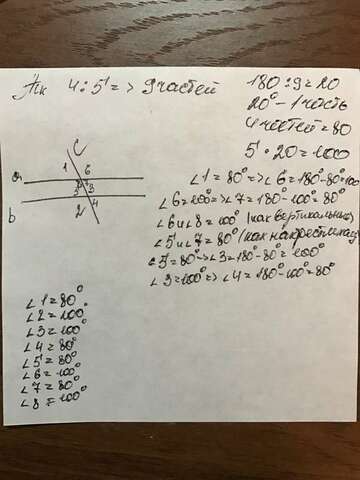 Тк 4:5 => 9 частей
180:9=20
20° - 1 часть
4 частей = 80
5 · 20 = 100
c
1 6
a
3
b
2 4
∠1 = 80° => ∠6 = 180°-80°=100
∠6=100° => ∠7 = 180°-100°= 80°
∠6 и ∠8 = 100° (как вертикальные)
∠5 и ∠7 = 80° (как накрестлежащ
∠5 = 80° -> ∠3 = 180°-80° = 100°
∠3 = 100° => ∠4 = 180°-100°= 80°
∠1 = 80°
∠2 = 100°
∠3 = 100°
∠4 = 80°
∠5 = 80°
∠6 = 100°
∠7 = 80°
∠8 = 100°